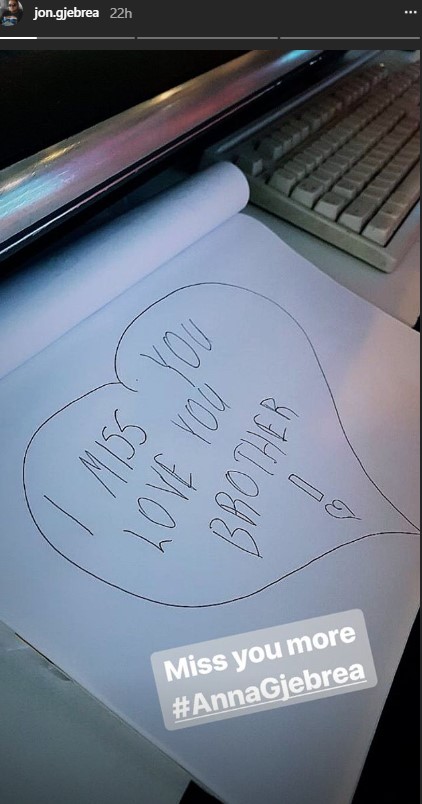 jon.gjebrea 22h
I MISS YOU
LOVE YOU
BROTHER !
Miss you more
#AnnaGjebrea